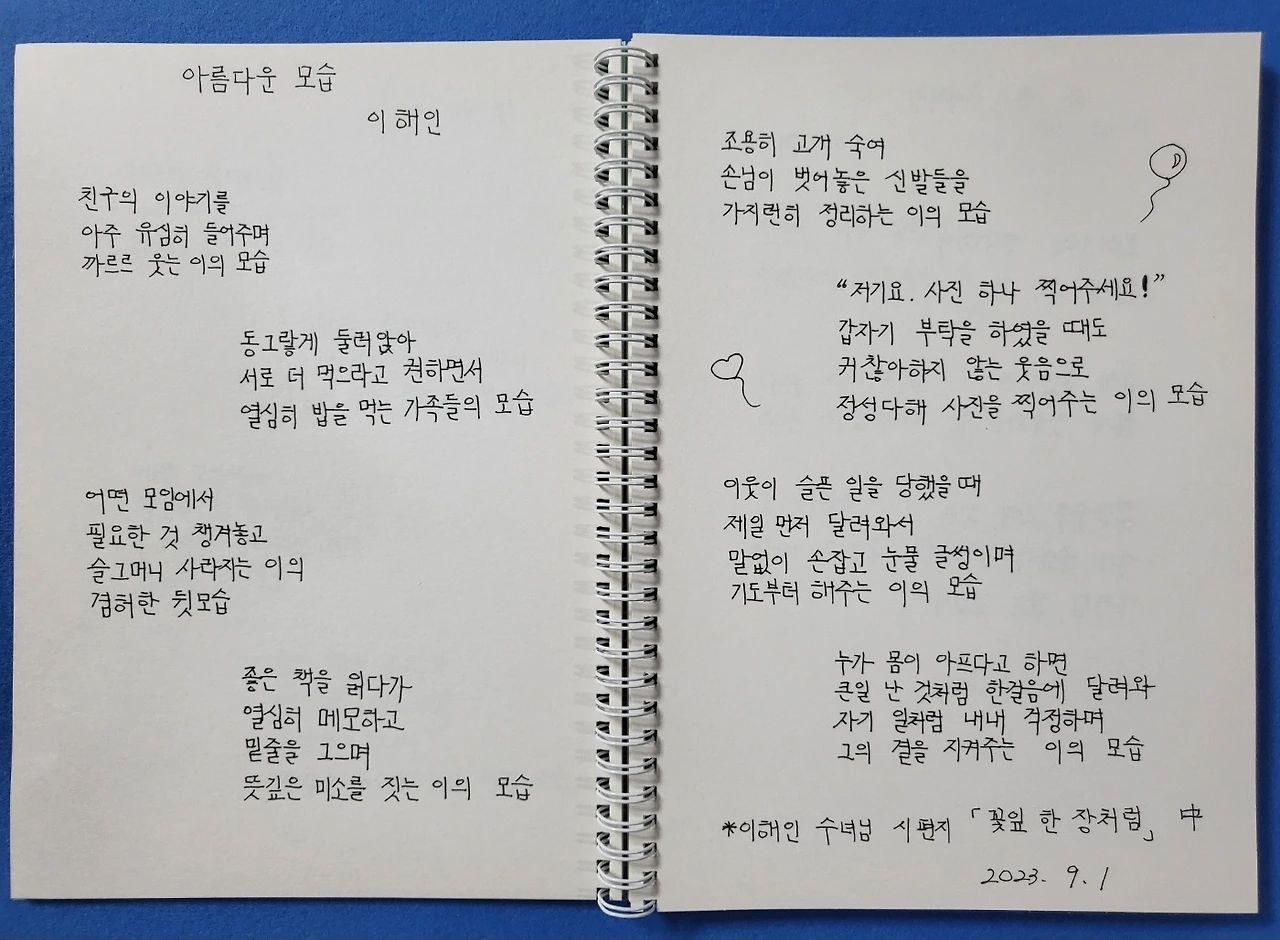 아름다운 모습
이해인
친구의 이야기를
아주 유심히 들어주며
까르르 웃는 이의 모습
동그랗게 둘러앉아
서로 더 먹으라고 권하면서
열심히 밥을 먹는 가족들의 모습
어떤 모임에서
필요한 것 챙겨놓고
슬그머니 사라지는 이의
겸허한 뒷모습
좋은 책을 읽다가
열심히 메모하고
밑줄을 그으며
뜻깊은 미소를 짓는 이의 모습
조용히 고개 숙여
손님이 벗어놓은 신발들을
가지런히 정리하는 이의 모습
“저기요. 사진 하나 찍어주세요!”
갑자기 부탁을 하였을 때도
귀찮아하지 않는 웃음으로
정성다해 사진을 찍어주는 이의 모습
이웃이 슬픈 일을 당했을 때
제일 먼저 달려와서
말없이 손잡고 눈물 글썽이며
기도부터 해주는 이의 모습
누가 몸이 아프다고 하면
큰일 난 것처럼 한걸음에 달려와
자기 일처럼 내내 걱정하며
그의 곁을 지켜주는 이의 모습
*이해인 수녀님 시 편지 「꽃잎 한 장처럼」 中
2023. 9. 1